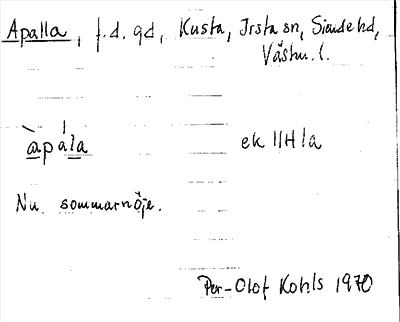 Apalla, f.d. gd, Kusta, Irsta sn, Siende hd,
Västm. l.
àpála ek 11H1a
Nu sommarnöje.
Per-Olof Kohls 1970